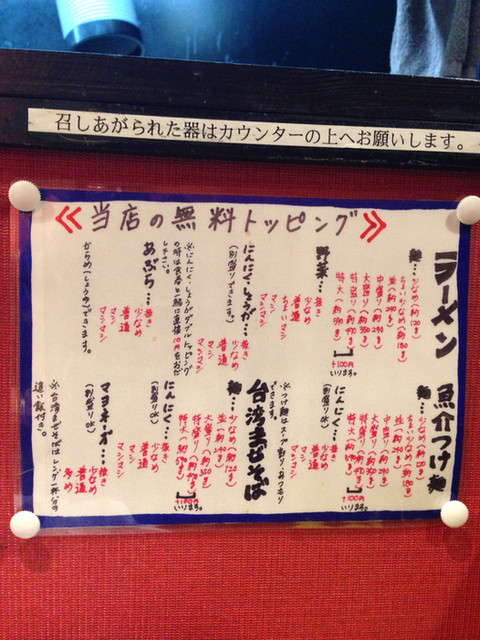 召しあがられた器はカウンターの上へお願いします。
≪当店の無料トッピング≫
ラーメン
麺…少なめ(約120g)
ちょい少なめ(約180g)
並(約240g)
中盛り(約290g)
大盛り(約350g)
特盛り(約470g)
特大(約590g)
+100円
いります。
野菜…抜き
少なめ
普通
ちょいマシ
マシ
マシマシ
にんにく・しょうが…抜き
(別盛りできます。)
少なめ
普通
マシ
マシマシ
※にんにく・しょうががダブルトッピング
の時は食券と一緒に直接10円をお出
し下さい。
あぶら…抜き
少なめ
普通
マシ
マシマシ
からめ(しょうゆ)できます。
魚介つけ麺
麺…少なめ(約120g)
ちょい少なめ(約180g)
並(約240g)
中盛り(約290g)
大盛り(約350g)
特盛り(約470g)
特大(約590g)
+100円
いります。
にんにく…抜き
(別盛りOK)
少なめ
普通
マシ
マシマシ
※つけ麺はスープ割り、あつもり
できます。
台湾まぜそば
麺…少なめ(約120g)
並(約240g)
大盛り
特盛り
特大
+100円
いります。
にんにく…抜き
(別盛りOK)
少なめ
普通
マシ
マシマシ
マヨネーズ…抜き
(別盛りOK)
少なめ
普通
多め
※台湾まぜそばはレンゲ一杯分の
追い飯付き。